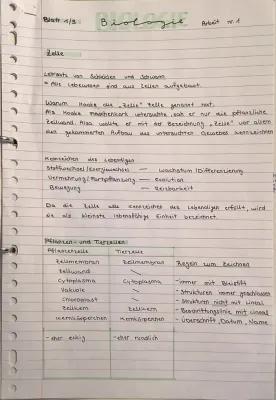 Blatt 1/3 Biologie Arbeit nr. 1
Zelle
Lehrsatz von Schleiden und Schwann
Alle Lebewesen sind aus Zellen aufgebaut.
Warum Hooke die „Zelle" Zelle genannt hat.
Als Hooke Flaschenkork untersuchte, sah er nur die pflanzliche
Zellwand. Also wollte er mit der Bezeichnung „Zelle" vor allem
den gekammerten Aufbau des untersuchten Gewebes kennzeichnen
Kennzeichen des Lebendigen
Stoffwechsel/Energiewechsel — Wachstum/Differenzierung
Vermehrung/Fortpflanzung — Evolution
Bewegung — Reizbarkeit
Da die Zelle alle Kennzeichen des Lebendigen erfüllt, wird
sie als kleinste lebensfähige Einheit bezeichnet.
Pflanzen- und Tierzellen
Pflanzenzelle Tierzelle
Zellmembran Zellmembran Regeln zum Zeichnen
Zellwand
Cytoplasma Cytoplasma -immer mit Bleistift
Vakuole -Strukturen immer geschlossen
Chloroplast -Strukturen nicht mit Lineal
Zellkern Zellkern -Beschriftungslinie mit Lineal
Kernkörperchen Kernkörperchen -Überschrift, Datum, Name
-eher eckig -eher rundlich